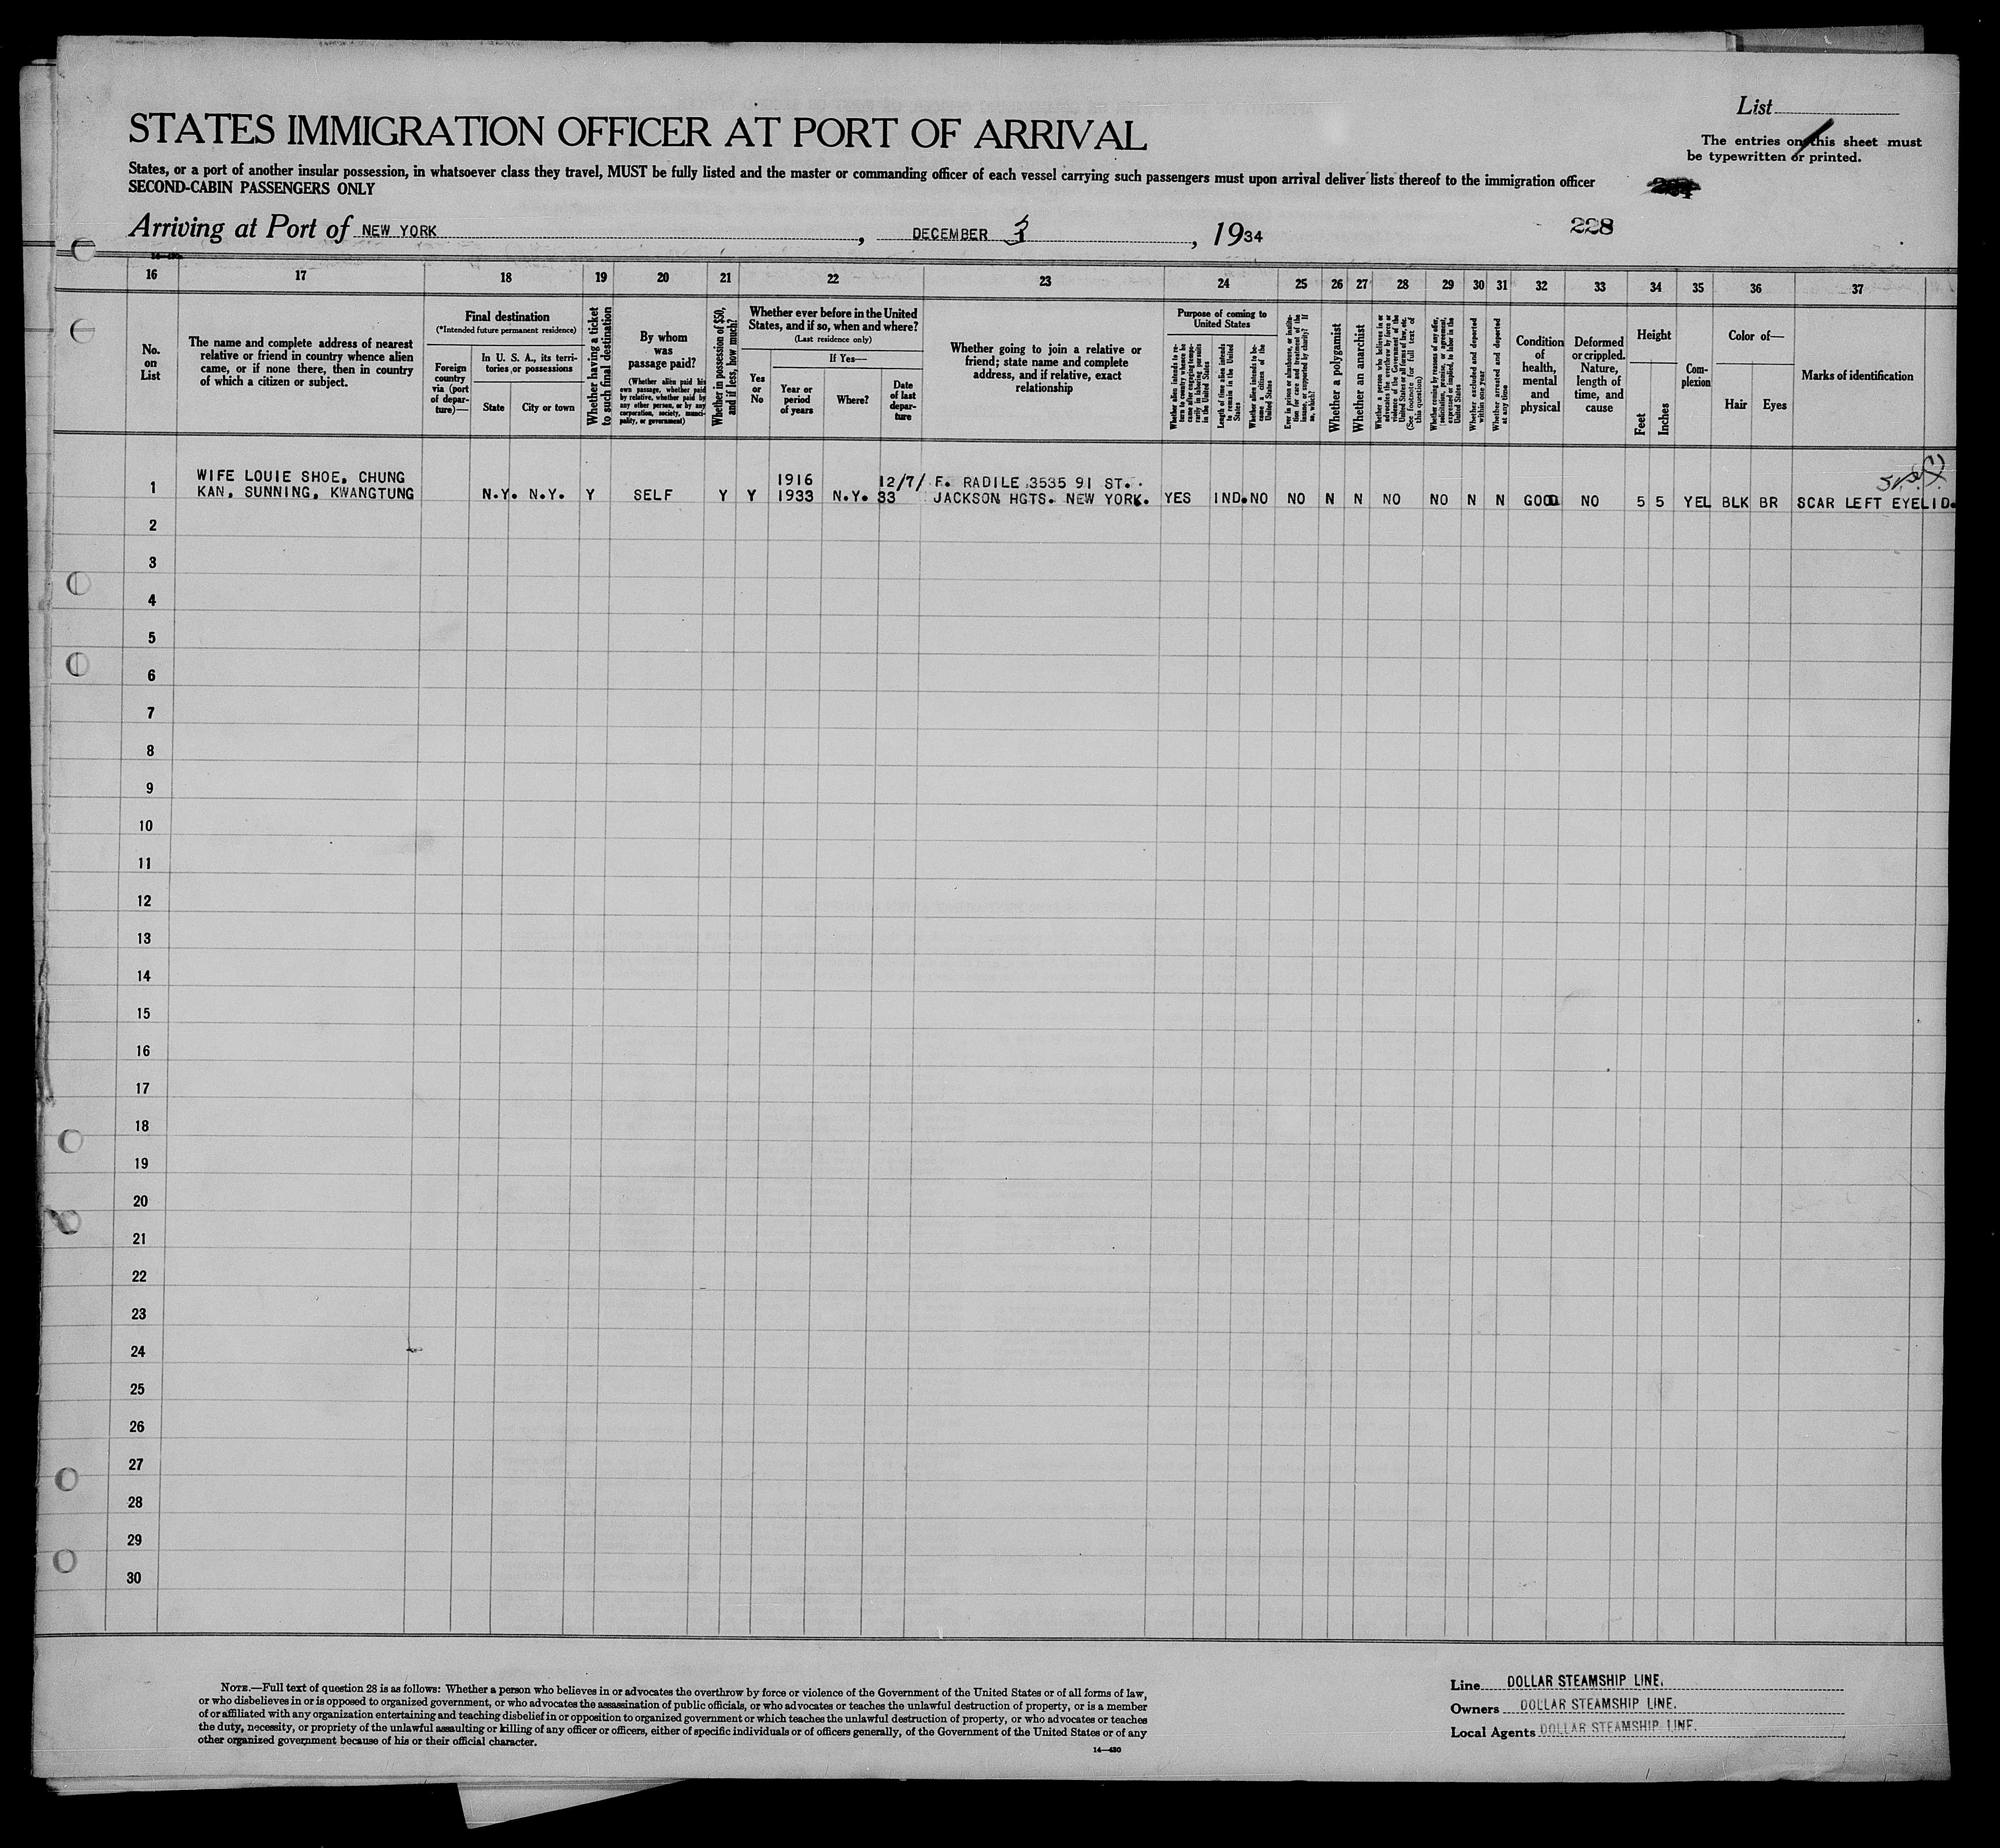 List
STATES IMMIGRATION OFFICER AT PORT OF ARRIVAL
The entries on this sheet must
be typewritten or printed.
States, or a port of another insular possession, in whatsoever class they travel, MUST be fully listed and the master or commanding officer of each vessel carrying such passengers must upon arrival deliver lists thereof to the immigration officer
SECOND-CABIN PASSENGERS ONLY
228
Arriving at Port of NEW YORK, DECEMBER 3, 1934
16 17 18 19 20 21 22 23 24 25 26 27 28 29 30 31 32 33 34 35 36 37
No.
on
List
The name and complete address of nearest
relative or friend in country whence alien
came, or if none there, then in country
of which a citizen or subject.
Final destination
(*Intended future permanent residence)
Foreign
country
via (port
of depar-
ture)—
In U. S. A., its terri-
tories or possessions
State City or town
Whether having a ticket
to such final destination
By whom
was
passage paid?
(Whether alien paid his
own passage, whether paid
by relative, whether paid by
any other person, or by any
corporation, society, munici-
pality, or government)
Whether in possession of $50,
and if less, how much?
Whether ever before in the United
States, and if so, when and where?
(Last residence only)
Yes
or
No
If Yes—
Year or
period
of years
Where?
Date
of last
depar-
ture
Whether going to join a relative or
friend; state name and complete
address, and if relative, exact
relationship
Purpose of coming to
United States
Whether alien intends to re-
turn to country whence he
came after engaging tempo-
rarily in laboring pursuits
in the United States
Length of time alien intends
to remain in the United
States
Whether alien intends to be-
come a citizen of the
United States
Ever in prison or almshouse, or institu-
tion for care and treatment of the
insane, or supported by charity? If
so, which?
Whether a polygamist
Whether an anarchist
Whether a person who believes in or
advocates the overthrow by force or
violence of the Government of the
United States or all forms of law, etc.
(See footnote for full text of
this question)
Whether coming by reasons of any offer,
solicitation, promise, or agreement,
expressed or implied, to labor in the
United States
Whether excluded and deported
within one year
Whether arrested and deported
at any time
Condition
of
health,
mental
and
physical
Deformed
or crippled.
Nature,
length of
time, and
cause
Height
Feet
Inches
Com-
plexion
Color of—
Hair Eyes
Marks of identification
WIFE LOUIE SHOE, CHUNG 1916 12/7/ F. RADILE 3535 91 ST.
1 KAN, SUNNING, KWANGTUNG N.Y. N.Y. Y SELF Y Y 1933 N.Y. 33 JACKSON HGTS. NEW YORK. YES IND. NO NO N N NO NO N N GOOD NO 5 5 YEL BLK BR SCAR LEFT EYELID.
2
3
4
5
6
7
8
9
10
11
12
13
14
15
16
17
18
19
20
21
22
23
24
25
26
27
28
29
30
NOTE.—Full text of question 28 is as follows: Whether a person who believes in or advocates the overthrow by force or violence of the Government of the United States or of all forms of law,
or who disbelieves in or is opposed to organized government, or who advocates the assassination of public officials, or who advocates or teaches the unlawful destruction of property, or is a member
of or affiliated with any organization entertaining and teaching disbelief in or opposition to organized government or which teaches the unlawful destruction of property, or who advocates or teaches
the duty, necessity, or propriety of the unlawful assaulting or killing of any officer or officers, either of specific individuals or of officers generally, of the Government of the United States or of any
other organized government because of his or their official character.
14—430
Line DOLLAR STEAMSHIP LINE.
Owners DOLLAR STEAMSHIP LINE.
Local Agents DOLLAR STEAMSHIP LINE.